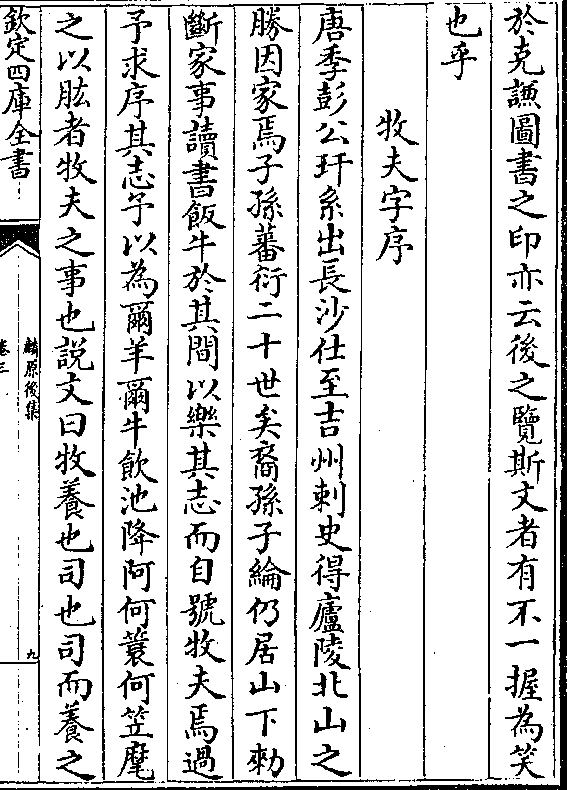 於克謙圖書之印亦云後之覽斯文者有不一握為笑
也乎
牧夫字序
唐季彭公玕系出長沙仕至吉州刺史得廬陵北山之
勝因家焉子孫蕃衍二十世矣裔孫子綸仍居山下勅
斷家事讀書飯牛於其間以樂其志而自號牧夫焉過
予求序其志予以為爾羊爾牛飲池降阿何蓑何笠麾
之以肱者牧夫之事也說文曰牧養也司也司而養之
欽定四庫全書
麟原後集
卷三
九